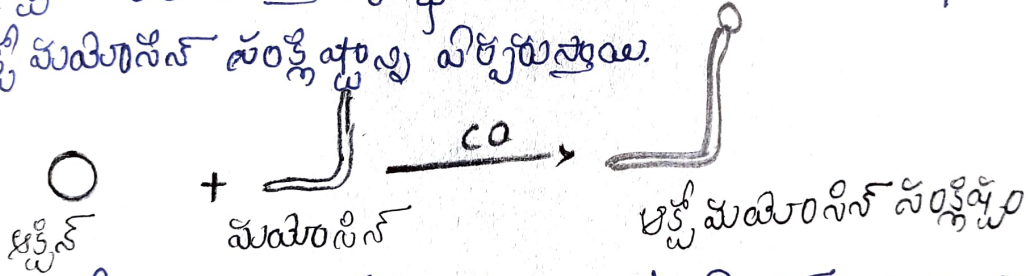 మయోసిన్ సంక్లిష్టాన్ని ఏర్పరుస్తాయి.
CO
+
ఆక్టిన్ మయోసిన్ ఆక్టోమయోసిన్ సంక్లిష్టం